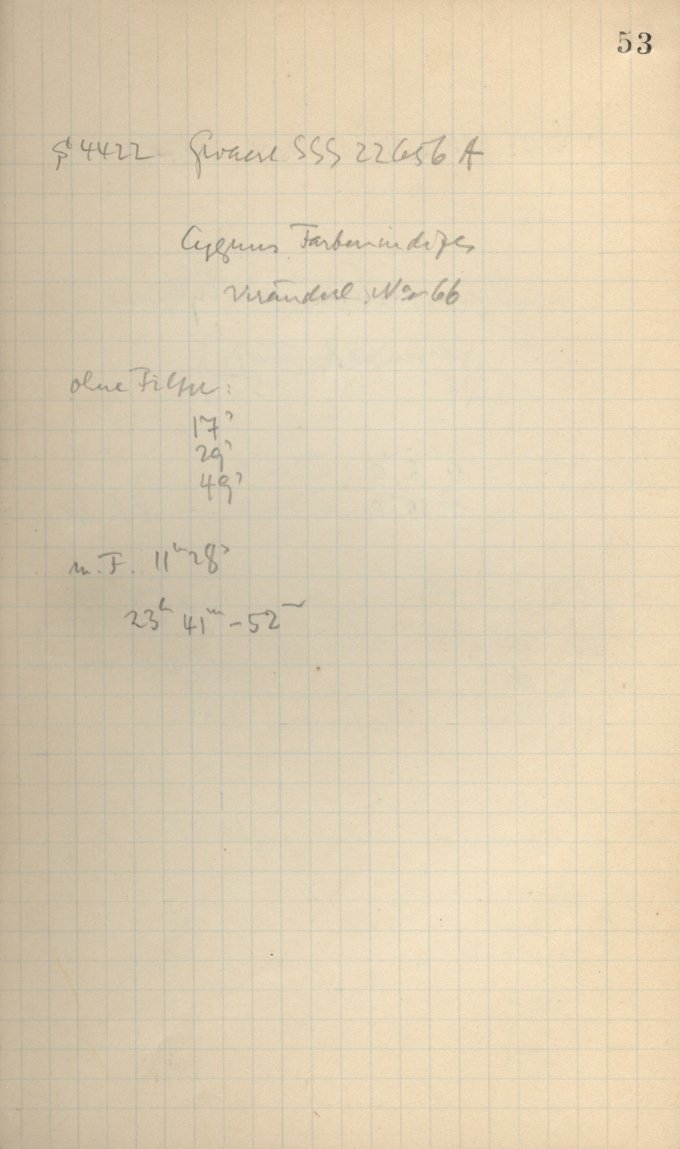 53
S 4422 Gevaert SSS 22656 A
Cygnus Farbenindizes
Veränderl. Nr 66
ohne Filter:
17ˢ
29ˢ
49ˢ
m. F. 11ᵐ 28ˢ
23ʰ 41ᵐ – 52ᵐ